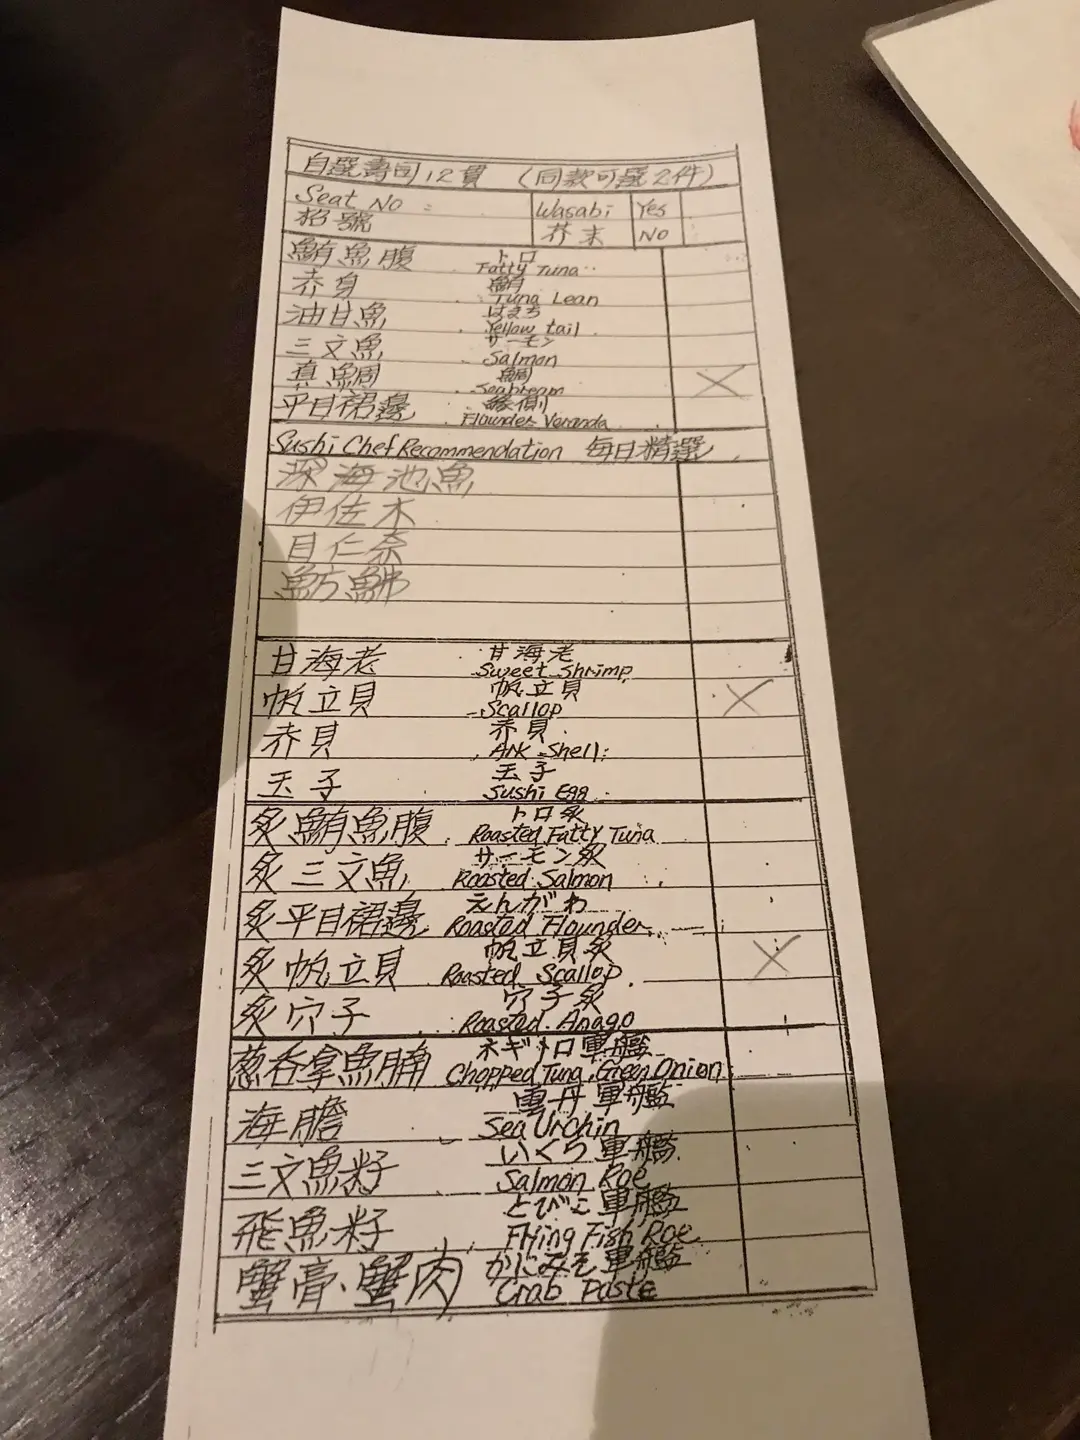 自選壽司12貫 (同款可選2件)
Seat No : Wasabi Yes
枱號 芥末 No
鮪魚腹 トロ
Fatty Tuna
赤身 鮪
Tuna Lean
油甘魚 はまち
Yellow tail
三文魚 サーモン
Salmon
真鯛 鯛
Seabream
平目裙邊 縁側
Flounder Veranda
Sushi Chef Recommendation 每日精選
深海池魚
伊佐木
目仁奈
魴鮄
甘海老 甘海老
Sweet Shrimp
帆立貝 帆立貝
Scallop
赤貝 赤貝
Ark Shell
玉子 玉子
Sushi Egg
炙鮪魚腹 トロ炙
Roasted Fatty Tuna
炙三文魚 サーモン炙
Roasted Salmon
炙平目裙邊 えんがわ
Roasted Flounder
炙帆立貝 帆立貝炙
Roasted Scallop
炙穴子 穴子炙
Roasted Anago
葱吞拿魚腩 ネギトロ軍艦
Chopped Tuna, Green Onion
海膽 雲丹軍艦
Sea Urchin
三文魚籽 いくら軍艦
Salmon Roe
飛魚籽 とびこ軍艦
Flying Fish Roe
蟹膏、蟹肉 かにみそ軍艦
Crab Paste